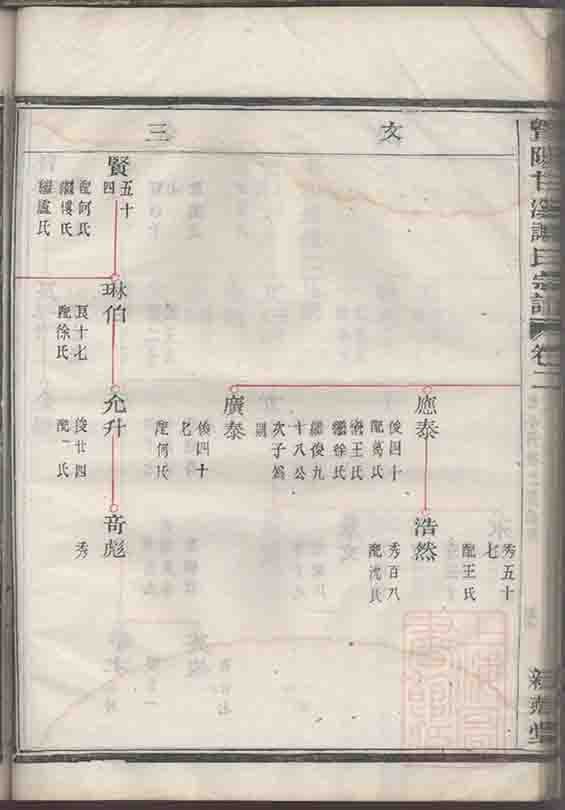 暨陽甘溪譚氏宗譜 卷二
文 三
秀五十七
配王氏
應泰
俊四十
配葛氏
繼王氏
繼徐氏
浩然
秀百八
配沈氏
廣泰
繼俊九
十八公
次子為
則
俊四十
七
配何氏
賢
五十
四
配何氏
繼樓氏
繼盧氏
琳伯
良十七
配徐氏
允升
俊廿四
配丁氏
奇彪
秀